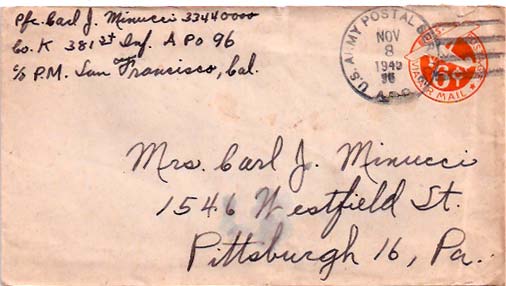 Pfc. Carl J. Minucci 33440000
Co. K 381st Inf. APO 96
c/o P.M. San Francisco, Cal.
U.S. ARMY POSTAL
NOV
8
1945
96
VIA AIR MAIL
6¢
Mrs. Carl J. Minucci
1546 Westfield St.
Pittsburgh 16, Pa.